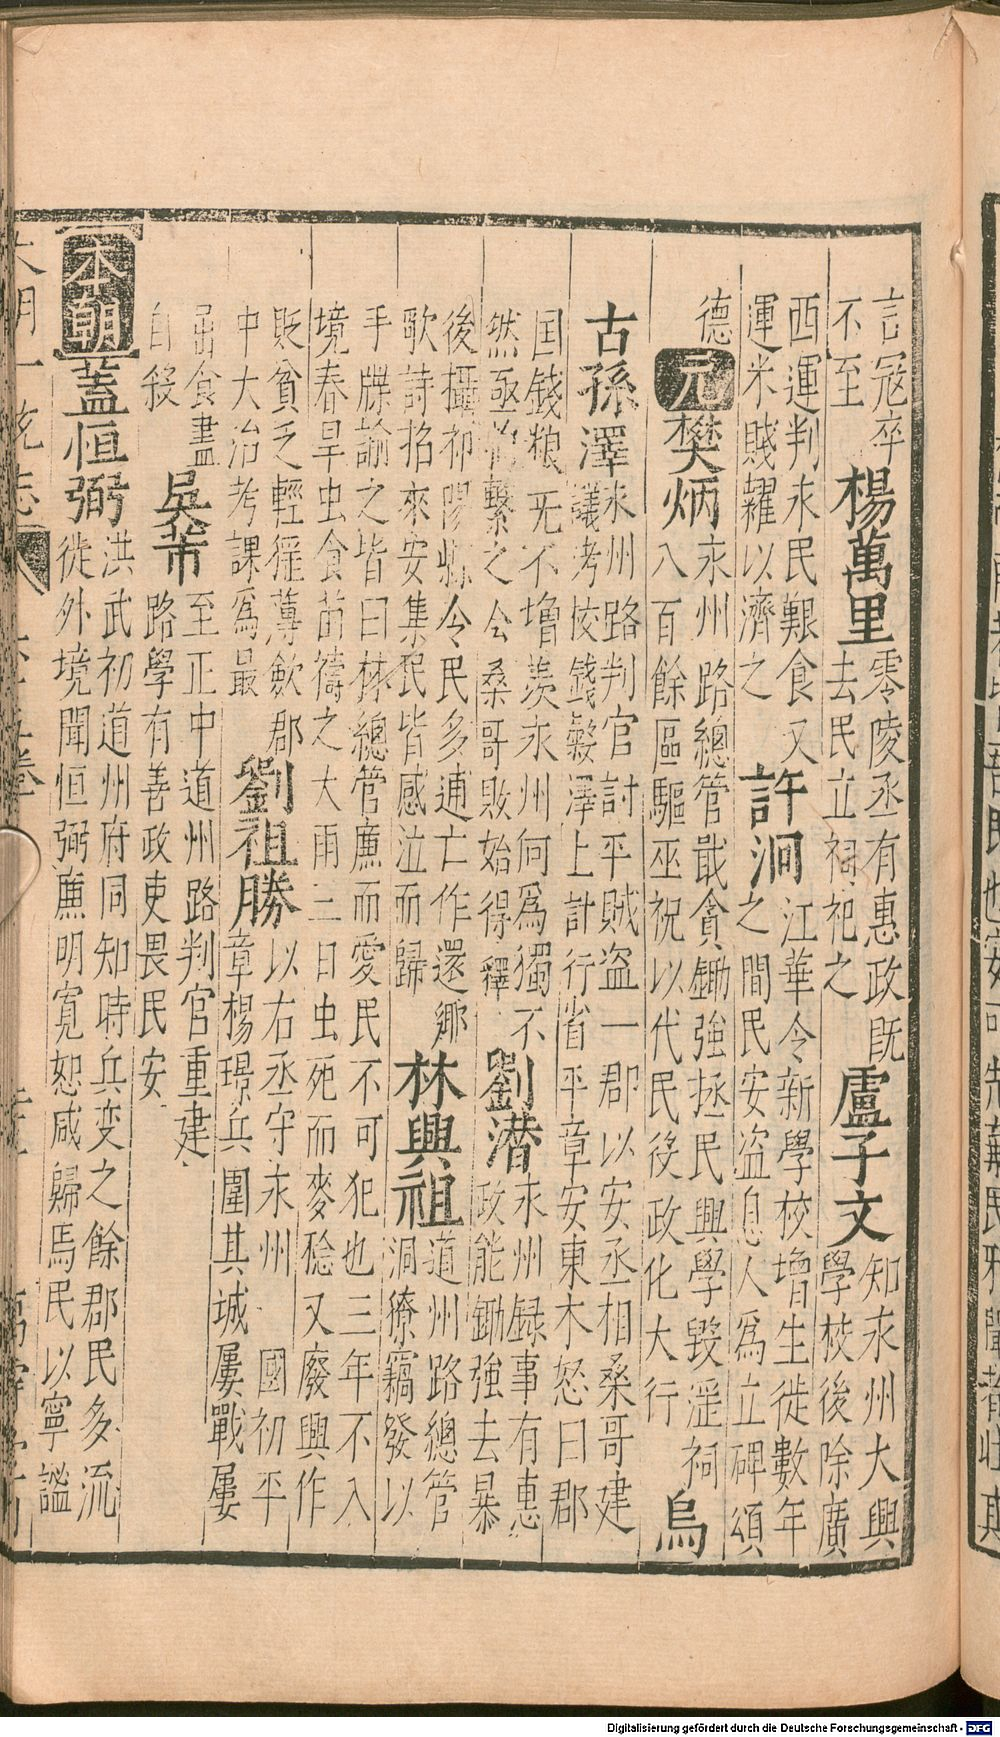 言冦卒
不至
楊萬里
零陵丞有惠政旣
去民立祠祀之
盧子文
知永州大興
學校後除廣
西運判永民艱食又
運米賤糶以濟之
許泂
江華令新學校增生徒數年
之間民安盗息人為立碑頌
德
元
樊炳
永州路總管戢貪鋤強拯民興學毀淫祠
入百餘區驅巫祝以代民後政化大行
烏
古孫澤
永州路判官討平賊盗一郡以安丞相桑哥建
議考校錢穀澤上計行省平章安東木怒曰郡
国錢粮无不增羡永州何為獨不
然亟拘繫之会桑哥敗始得釋
劉潜
永州録事有惠
政能鋤強去暴
後攝祁陽縣令民多逋亡作還鄉
歌詩招來安集民皆感泣而歸
林興祖
道州路總管
洞獠竊發以
手牒諭之皆曰林總管廉而愛民不可犯也三年不入
境春旱虫食苗禱之大雨三日虫死而麥稔又廢興作
賑貧乏輕徭薄歛郡
中大治考課為最
劉祖勝
以右丞守永州 國初平
章楊璟兵圍其城屢戰屢
出食盡
自殺
吳芾
至正中道州路判官重建
路學有善政吏畏民安
本朝
蓋恒弼
洪武初道州府同知時兵变之餘郡民多流
徙外境聞恒弼廉明寛恕咸歸焉民以寧謐
大明一統志
萬壽堂刊
Digitalisierung gefördert durch die Deutsche Forschungsgemeinschaft - DFG